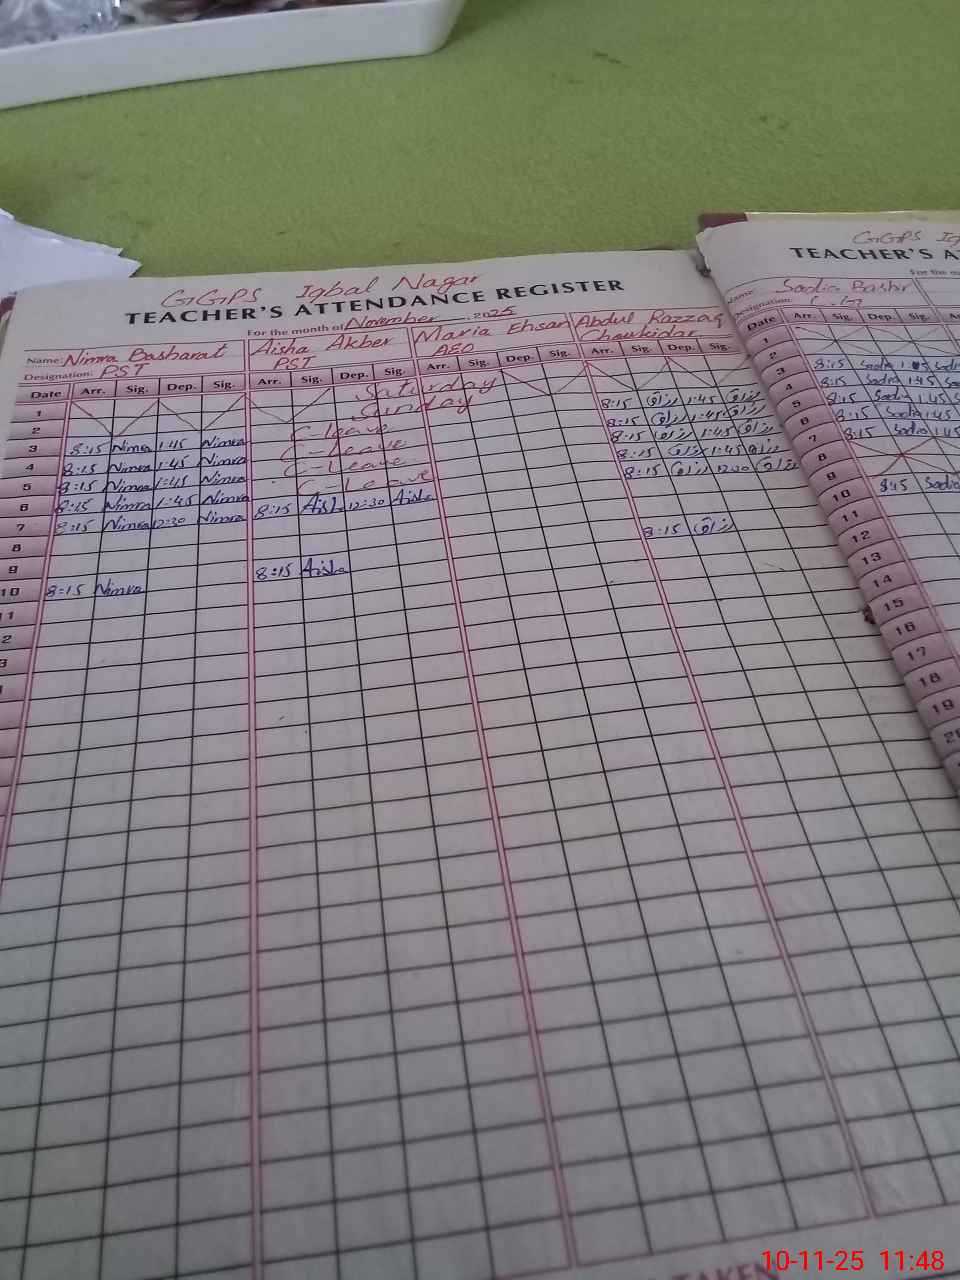 GGPS Iqbal Nagar
TEACHER'S ATTENDANCE REGISTER
For the month of November 2025
Name: Nimra Basharat Aisha Akber Maria Ehsan Abdul Razzaq
Designation: PST PST AEO Chowkidar
Date Arr. Sig. Dep. Sig. Arr. Sig. Dep. Sig. Arr. Sig. Dep. Sig. Arr. Sig. Dep. Sig.
1 Saturday
2 Sunday
3 8:15 Nimra 1:45 Nimra C-leave 8:15 رزاق 1:45 رزاق
4 8:15 Nimra 1:45 Nimra C-Leave 8:15 رزاق 1:45 رزاق
5 8:15 Nimra 1:45 Nimra C-Leave 8:15 رزاق 1:45 رزاق
6 8:15 Nimra 1:45 Nimra C-Leave 8:15 رزاق 1:45 رزاق
7 8:15 Nimra 12:30 Nimra 8:15 Aisha 12:30 Aisha 8:15 رزاق 12:30 رزاق
8
9
10 8:15 Nimra 8:15 Aisha 8:15 رزاق
11
GGPS
TEACHER'S
For the
Name: Sadia Bashir
Designation:
Date Arr. Sig. Dep. Sig.
1
2
3 8:15 Sadia 1:45
4 8:15 Sadia 1:45
5 8:15 Sadia 1:45
6 8:15 Sadia 1:45
7 8:15 Sadia
8
9
10 Sadia
11
12
13
14
15
16
17
18
19
TAKEN
10-11-25 11:48